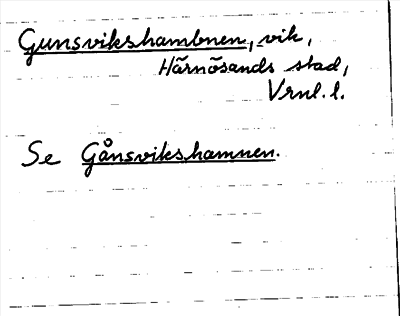 Gunsvikshambnen, vik,
Härnösands stad,
Vrnl. l.
Se Gånsvikshamnen.